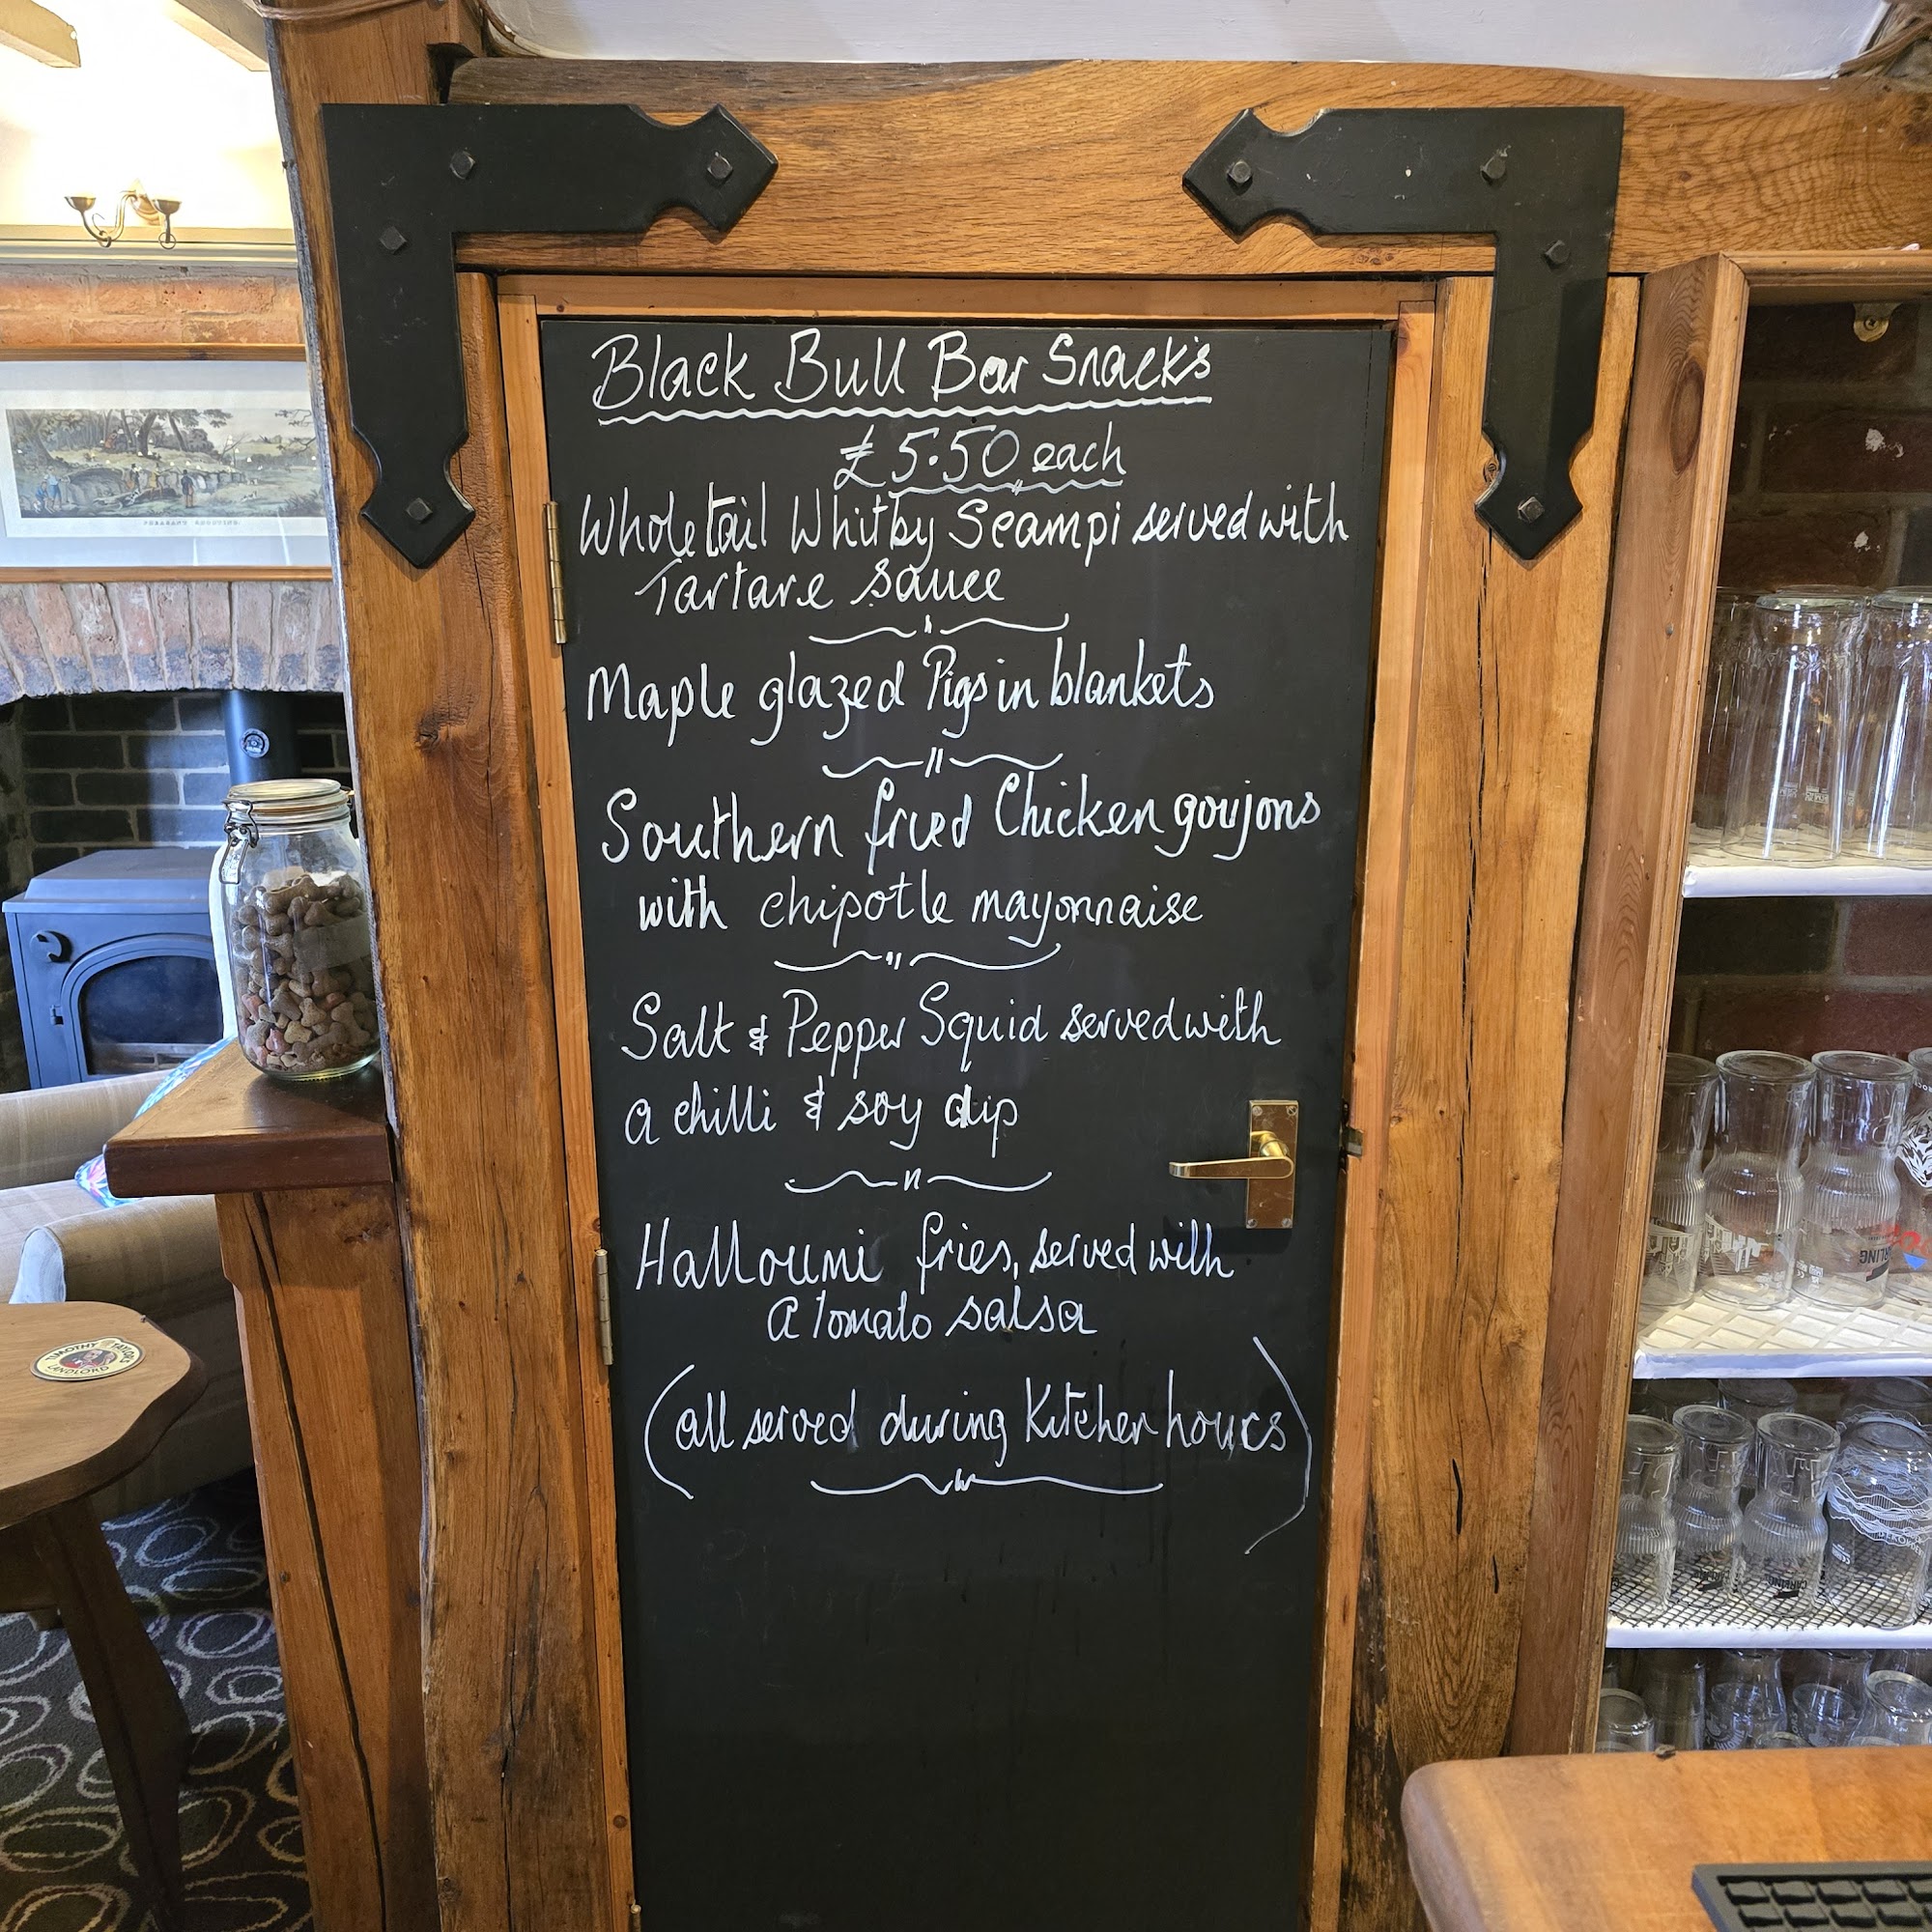 Black Bull Bar Snacks
£5.50 each
Whole tail Whitby Scampi served with
Tartare sauce
Maple glazed Pigs in blankets
Southern fried Chicken goujons
with chipotle mayonnaise
Salt & Pepper Squid served with
a chilli & soy dip
Halloumi fries, served with
a tomato salsa
(all served during Kitchen hours)
TIMOTHY TAYLOR'S
LANDLORD
CARLING